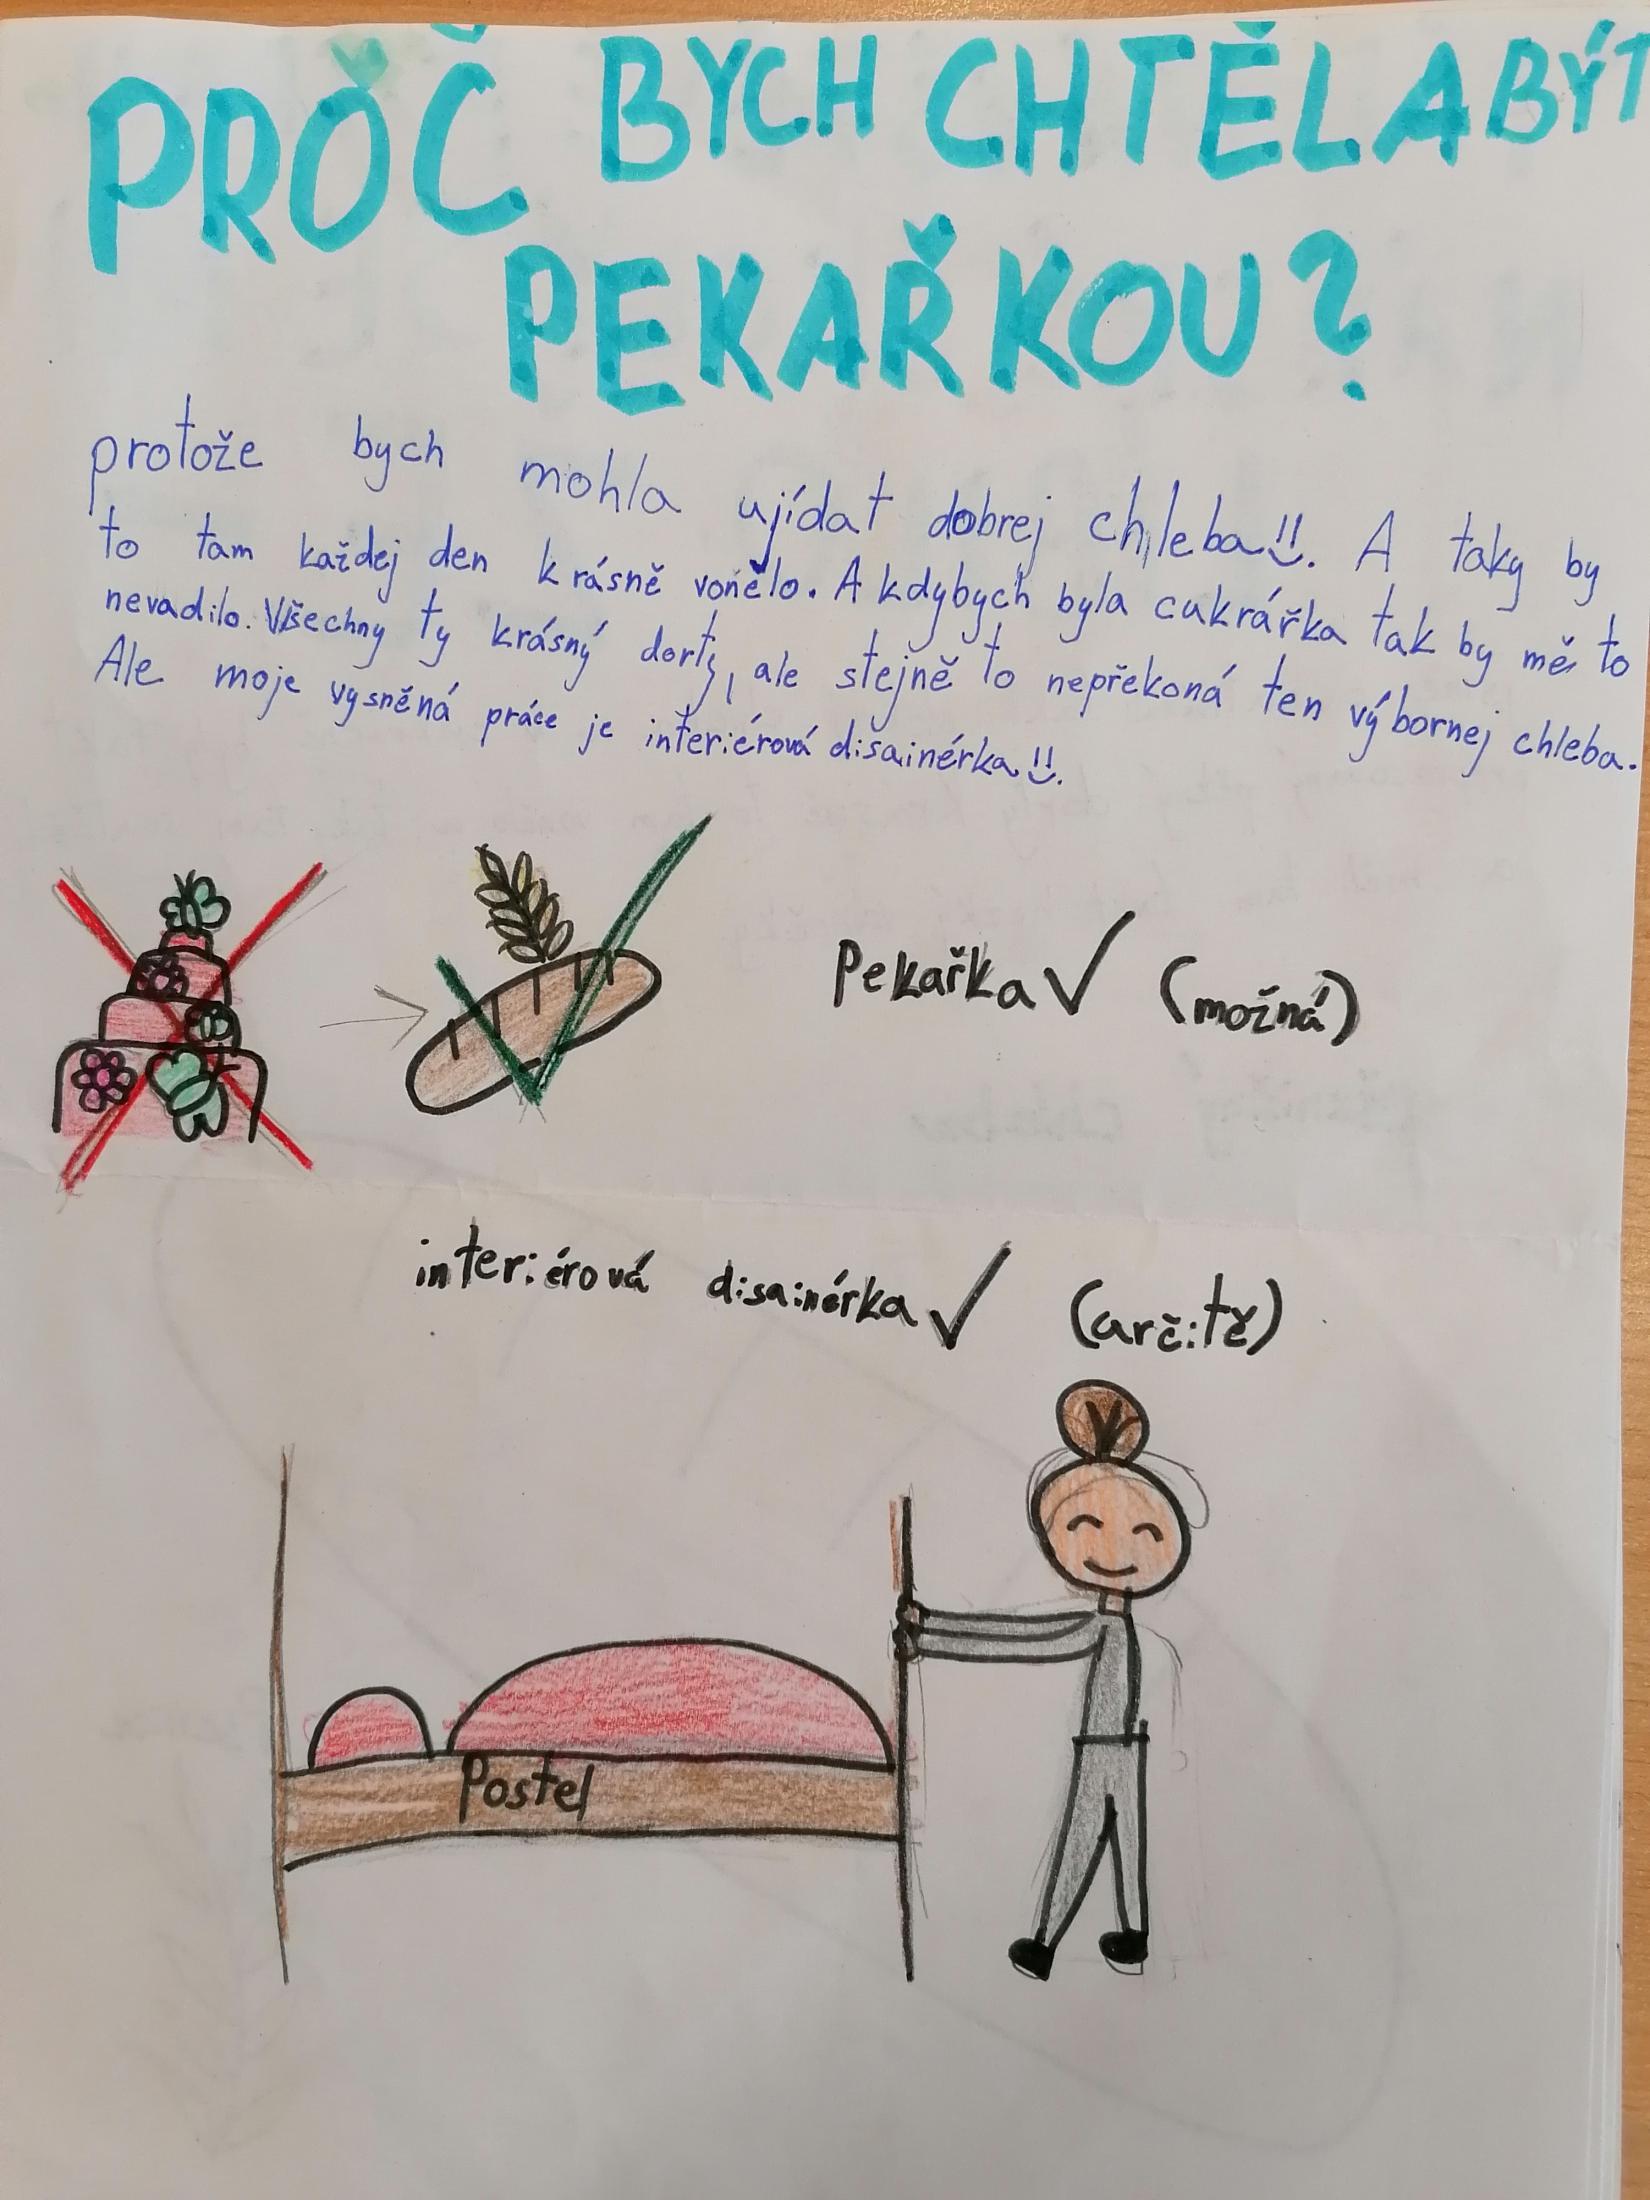 PROČ BYCH CHTĚLA BÝT
PEKAŘKOU?
protože bych mohla ujídat dobrej chleba!!. A taky by
to tam každej den krásně vonělo. A kdybych byla cukrářka tak by mě to
nevadilo. Všechny ty krásný dorty, ale stejně to nepřekoná ten výbornej chleba.
Ale moje vysněná práce je interiérová disainérka!!.
Pekařka ✓ (možná)
interiérová disainérka ✓ (určitě)
Postel